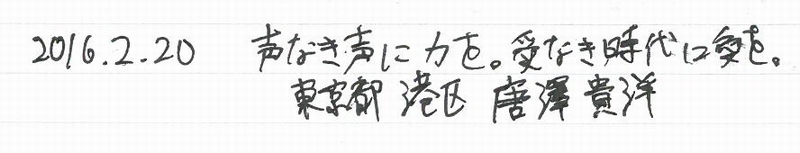 2016.2.20 声なき声に力を。愛なき時代に愛を。
東京都 港区 唐澤貴洋